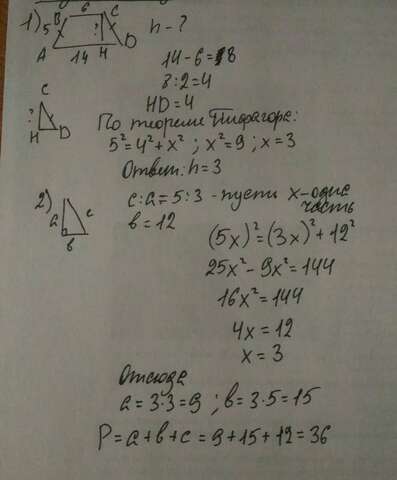 1) 5 B 6 C ? A 14 H D h - ?
14-6=18
8:2=4
HD=4
C ? H D По теореме Пифагора:
5²=4²+x² ; x²=9 ; x=3
Ответ: h=3
2) a c в c:a=5:3 - пусть x-одна часть
в=12
(5x)²=(3x)²+12²
25x²-9x²=144
16x²=144
4x=12
x=3
Отсюда
a=3·3=9 ; в=3·5=15
P=a+в+c=9+15+12=36